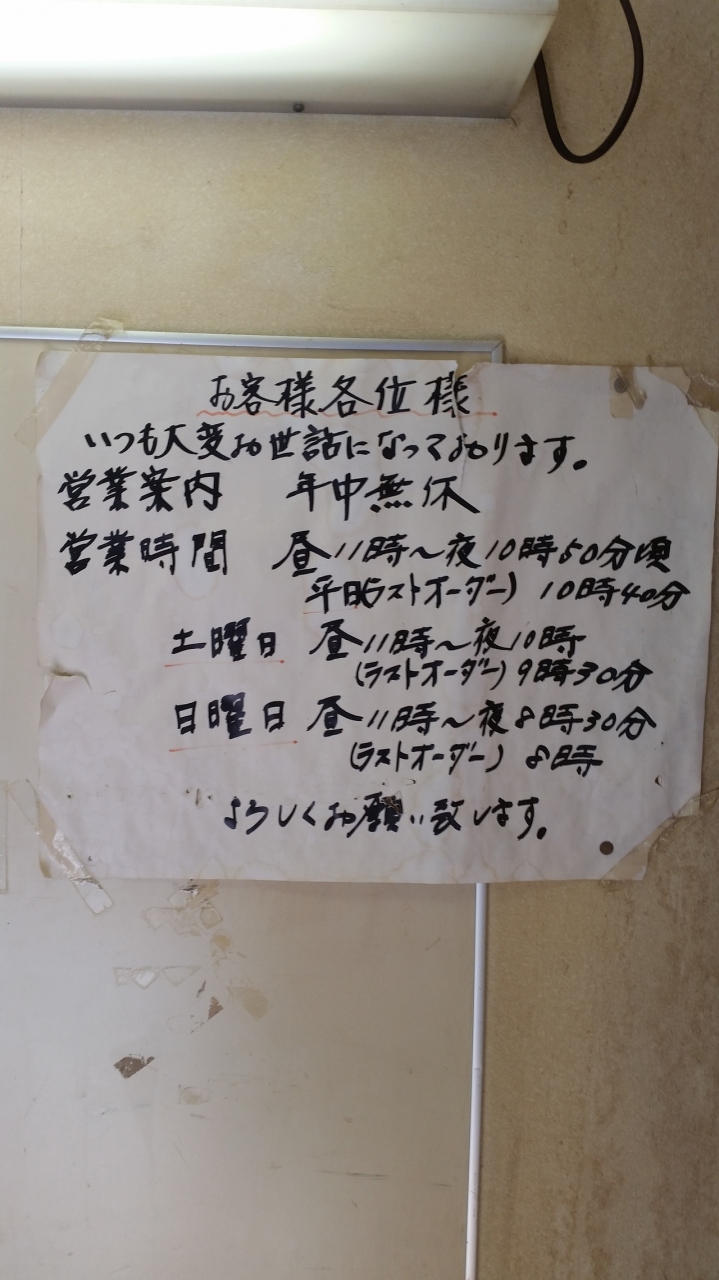 お客様各位様
いつも大変お世話になっております。
営業案内 年中無休
営業時間 昼11時～夜10時50分頃
平日(ラストオーダー) 10時40分
土曜日 昼11時～夜10時
(ラストオーダー) 9時30分
日曜日 昼11時～夜8時30分
(ラストオーダー) 8時
よろしくお願い致します。